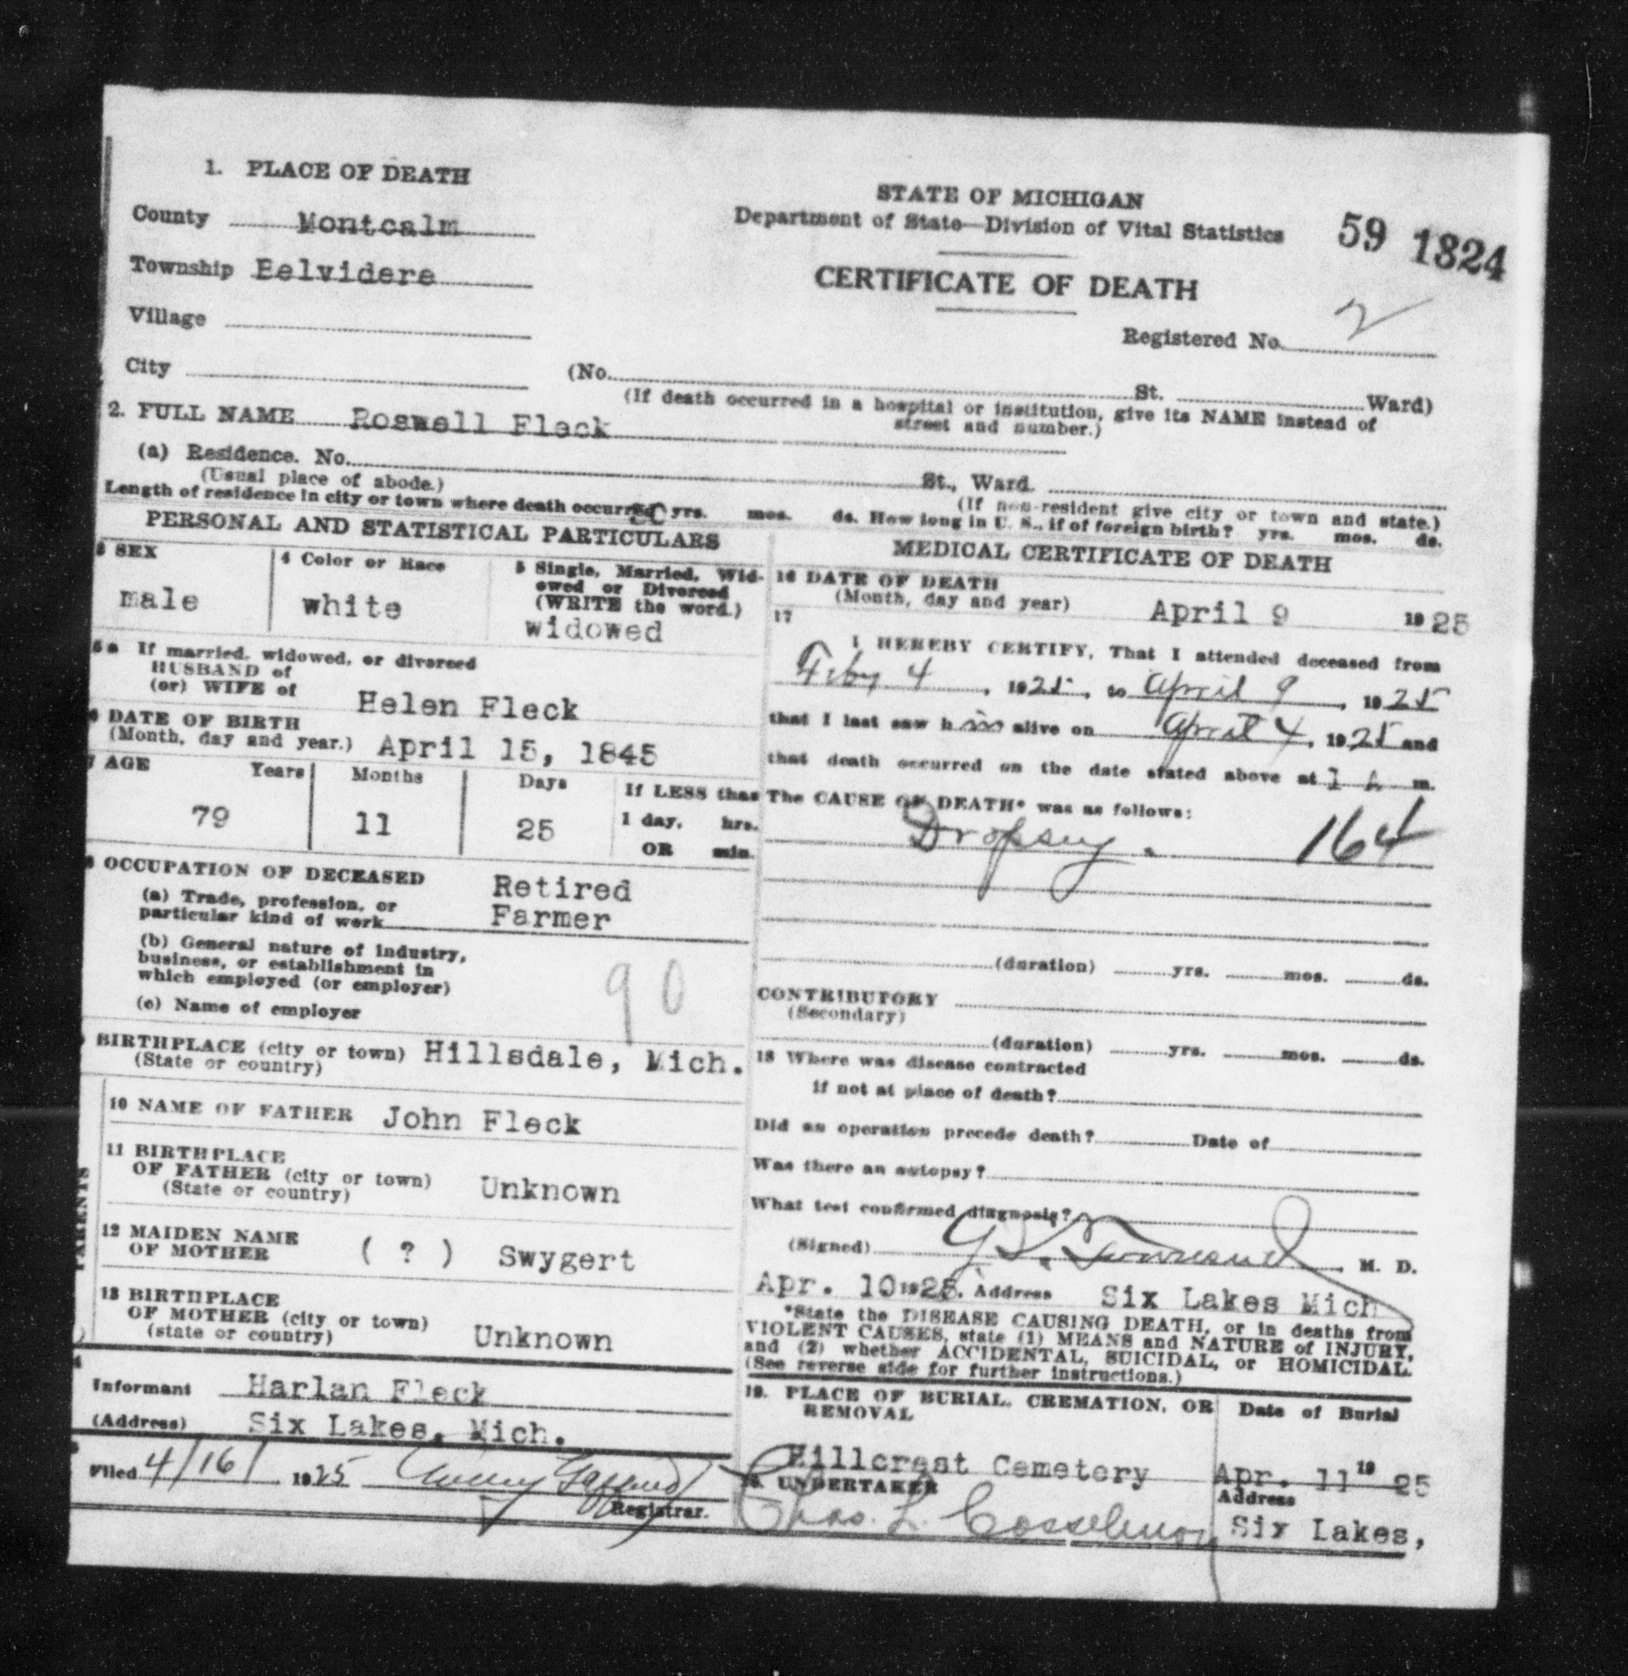 1. PLACE OF DEATH
County Montcalm
Township Belvidere
Village
City
STATE OF MICHIGAN
Department of State—Division of Vital Statistics
59 1824
CERTIFICATE OF DEATH
Registered No. 2
(No. St. Ward)
(If death occurred in a hospital or institution, give its NAME instead of
street and number.)
2. FULL NAME Roswell Fleck
(a) Residence. No. St., Ward.
(Usual place of abode.) (If non-resident give city or town and state.)
Length of residence in city or town where death occurred yrs. mos. ds. How long in U. S., if of foreign birth? yrs. mos. ds.
PERSONAL AND STATISTICAL PARTICULARS
3 SEX
male
4 Color or Race
white
5 Single, Married, Wid-
owed or Divorced
(WRITE the word.)
widowed
5a If married, widowed, or divorced
HUSBAND of
(or) WIFE of
Helen Fleck
6 DATE OF BIRTH
(Month, day and year.) April 15, 1845
7 AGE Years Months Days If LESS than
79 11 25 1 day, hrs.
OR min.
8 OCCUPATION OF DECEASED
(a) Trade, profession, or
particular kind of work
Retired
Farmer
(b) General nature of industry,
business, or establishment in
which employed (or employer)
(c) Name of employer
90
BIRTHPLACE (city or town) Hillsdale, Mich.
(State or country)
PARENTS
10 NAME OF FATHER John Fleck
11 BIRTHPLACE
OF FATHER (city or town)
(State or country)
Unknown
12 MAIDEN NAME
OF MOTHER ( ? ) Swygert
13 BIRTHPLACE
OF MOTHER (city or town)
(state or country) Unknown
Informant Harlan Fleck
(Address) Six Lakes, Mich.
Filed 4/16/ 1925
Registrar.
MEDICAL CERTIFICATE OF DEATH
16 DATE OF DEATH
(Month, day and year) April 9 1925
17
I HEREBY CERTIFY, That I attended deceased from
Feby 4, 1925, to April 9, 1925
that I last saw him alive on April 4, 1925 and
that death occurred on the date stated above at 1 A m.
The CAUSE OF DEATH* was as follows:
Dropsy. 164
(duration) yrs. mos. ds.
CONTRIBUTORY
(Secondary)
(duration) yrs. mos. ds.
18 Where was disease contracted
if not at place of death?
Did an operation precede death? Date of
Was there an autopsy?
What test confirmed diagnosis?
(Signed) Townsend, M. D.
Apr. 10 1925. Address Six Lakes Mich
*State the DISEASE CAUSING DEATH, or in deaths from
VIOLENT CAUSES, state (1) MEANS and NATURE of INJURY,
and (2) whether ACCIDENTAL, SUICIDAL, or HOMICIDAL.
(See reverse side for further instructions.)
19. PLACE OF BURIAL, CREMATION, OR
REMOVAL
Hillcrest Cemetery
Date of Burial
Apr. 11 19 25
UNDERTAKER
Chas. L.
Address
Six Lakes,